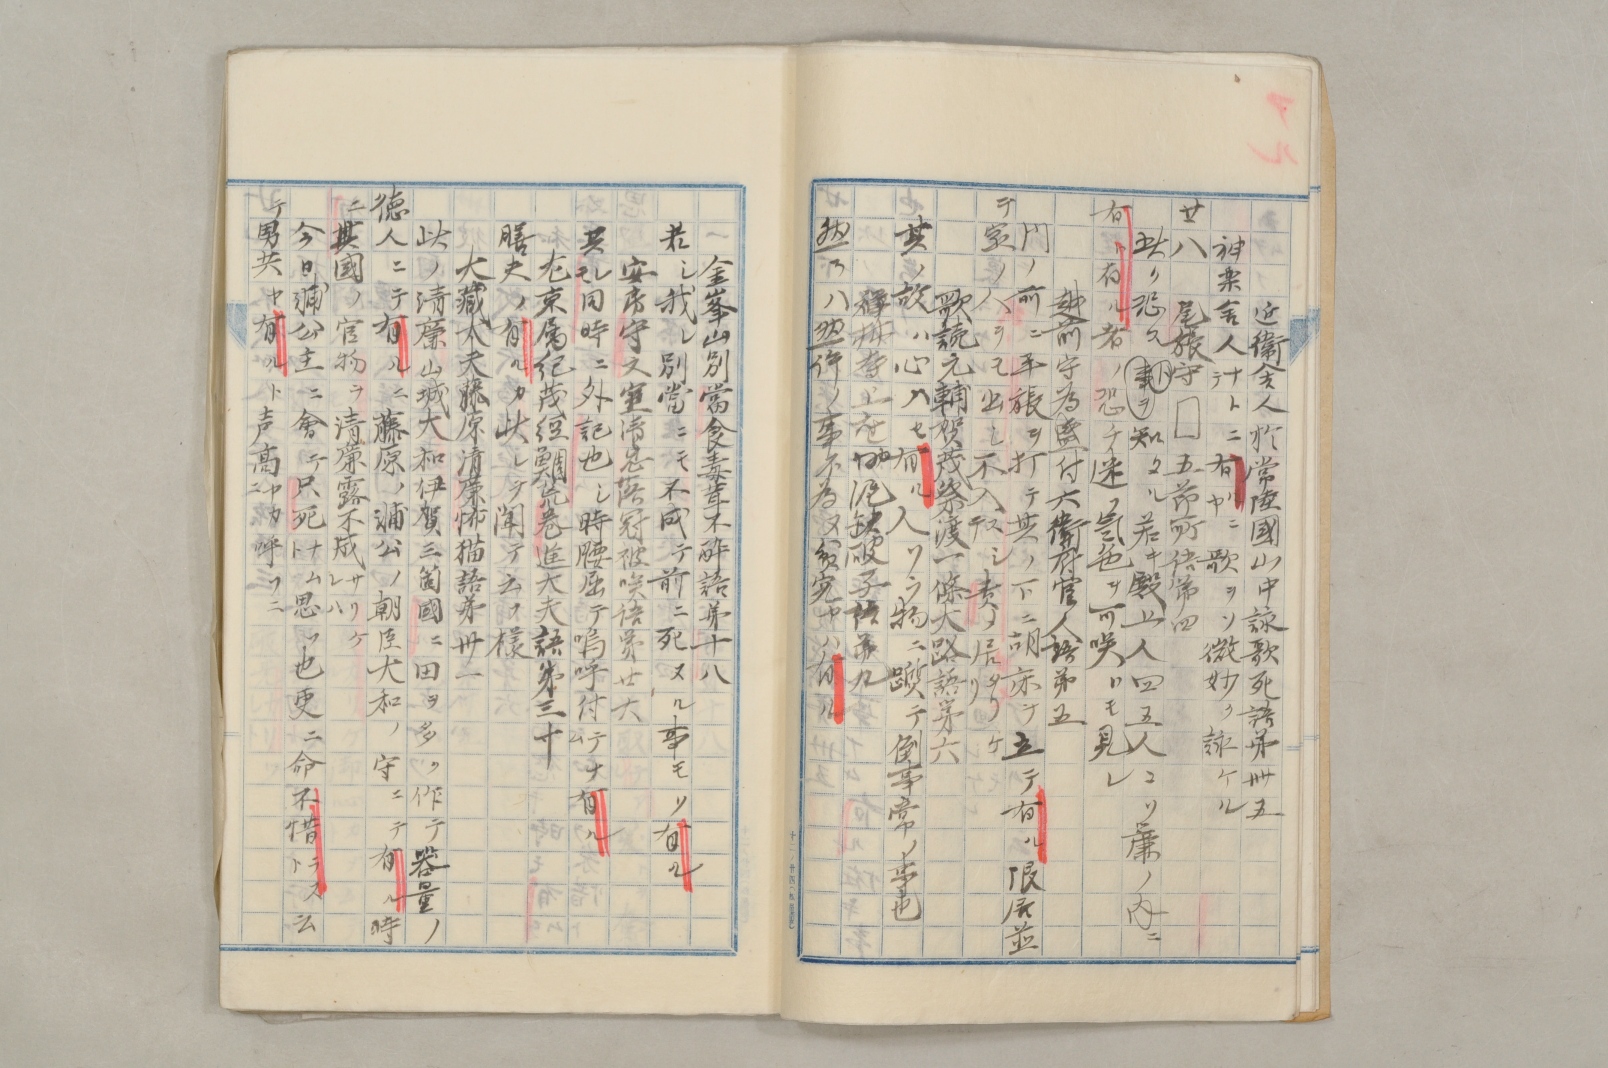 アル
近衛舎人於常陸國山中詠歌死語第卅五
神楽舎人ナトニテ有ルニヤ歌ヲソ微妙ク詠ケル
廿八 尾張守□五節所語第四
此リ恐ス事ヲ知タル若キ殿上人四五人コソリ簾ノ内ニ
有ト有ル者ノ恐テ迷フ気色ヲ可咲リモ見レ
越前守為盛付六衛府官人語第五
門ノ前ニ平張ヲ打テ其ノ下ニ胡床ヲ立テ有ル限居並
テ家ノ人ヲモ出シ不入スシテ責メ居タリケリ
歌読元輔賀茂祭渡一條大路語第六
其ノ故ハ心ハセ有ル人ソラ物ニ躓テ倒事常ノ事也
語第九
然ハ然様ノ事不為ヌ翁ニヤハ有ル
一 金峯山別當食毒茸不酔語第十八
若シ我レ別當ニモ不成テ前ニ死ヌル事モソ有ル
安房守文室清忠落冠被咲語第廿六
共ニ同時ニ外記也シ時腰屈テ嗚呼付テナム有ル
左京属紀茂經鯛荒巻進大夫語第三十
膳夫ノ有ルカ此レヲ聞テ云フ様
大蔵大夫藤原清廉怖猫語第卅一
此ノ清廉山城大和伊賀三箇國ニ田ヲ多ク作テ器量ノ
徳人ニテ有ルニ藤原ノ輔公ノ朝臣大和ノ守ニテ有ル時
ニ其國ノ官物ヲ清廉露不成サリケレハ
今日輔公主ニ會テ只死ナムト思フ也更ニ命不惜トテス云
テ男共ヤ有ルト声高ニヤカニ呼ヒソニ